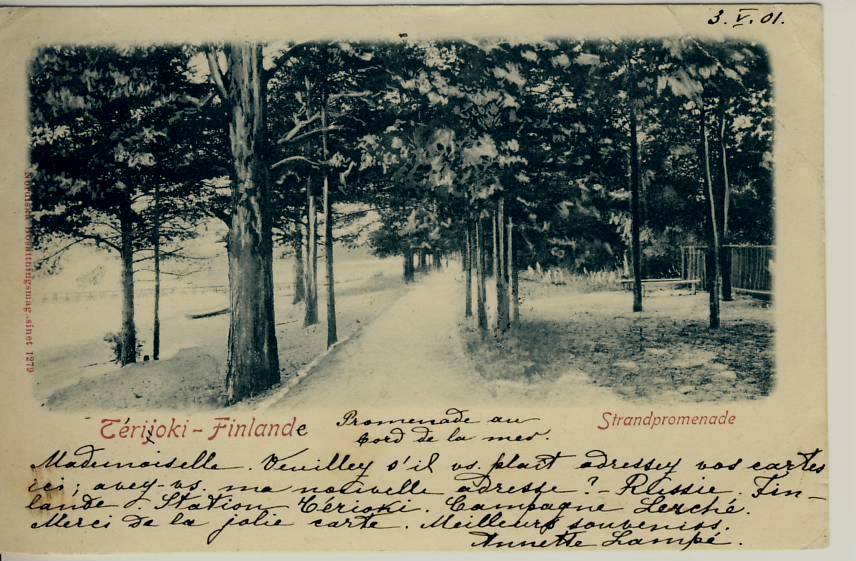 3. V. 01.
Nordiska Bosättningsmag-sinet 1279
Térijoki - Finlande
Promenade au
bord de la mer.
Strandpromenade
Mademoiselle. Veuilley s'il vs. plait adressey vos cartes
ici; avey-vs. ma nouvelle adresse? - Russie. Fin-
lande. Station Térioki. Campagne Lerché.
Merci de la jolie carte. Meilleurs souvenirs.
Annette Lampé.